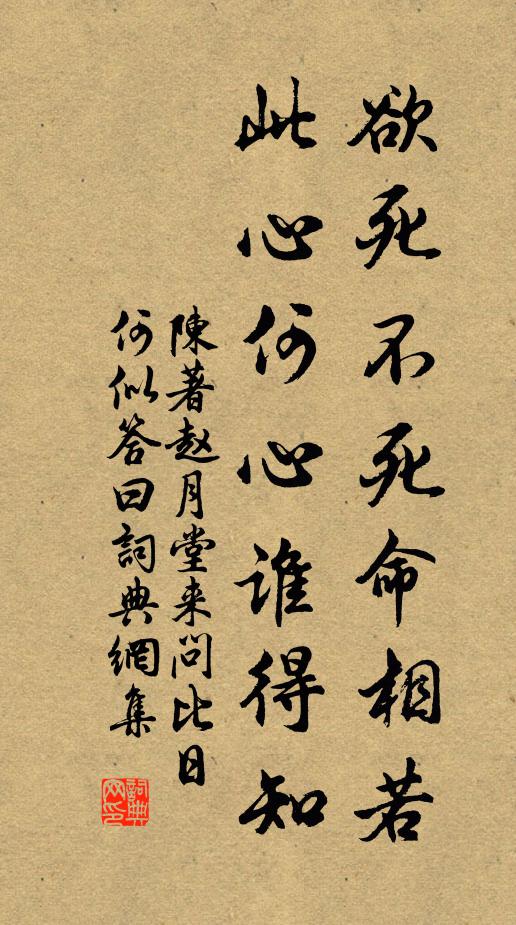 欲死不死命相若
此心何心谁得知
陳著赵月堂来问比日
何似答曰詞典網集
詞典
网印